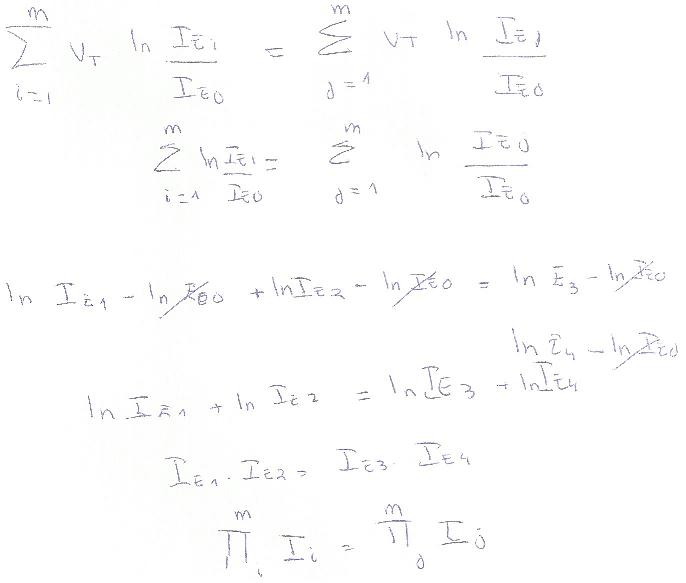 \sum_{i=1}^{m} V_T \ln \frac{I_{Ei}}{I_{E0}} = \sum_{j=1}^{m} V_T \ln \frac{I_{Ej}}{I_{E0}}
\sum_{i=1}^{m} \ln \frac{I_{Ei}}{I_{E0}} = \sum_{j=1}^{m} \ln \frac{I_{E0}}{I_{E0}}
ln I_{E1} - ln I_{E0} + ln I_{E2} - ln I_{E0} = ln E_3 - ln I_{E0}
ln E_4 - ln I_{E0}
ln I_{E1} + ln I_{E2} = ln I_{E3} + ln I_{E4}
I_{E1} . I_{E2} = I_{E3} . I_{E4}
\prod_{i}^{m} I_i = \prod_{j}^{m} I_j